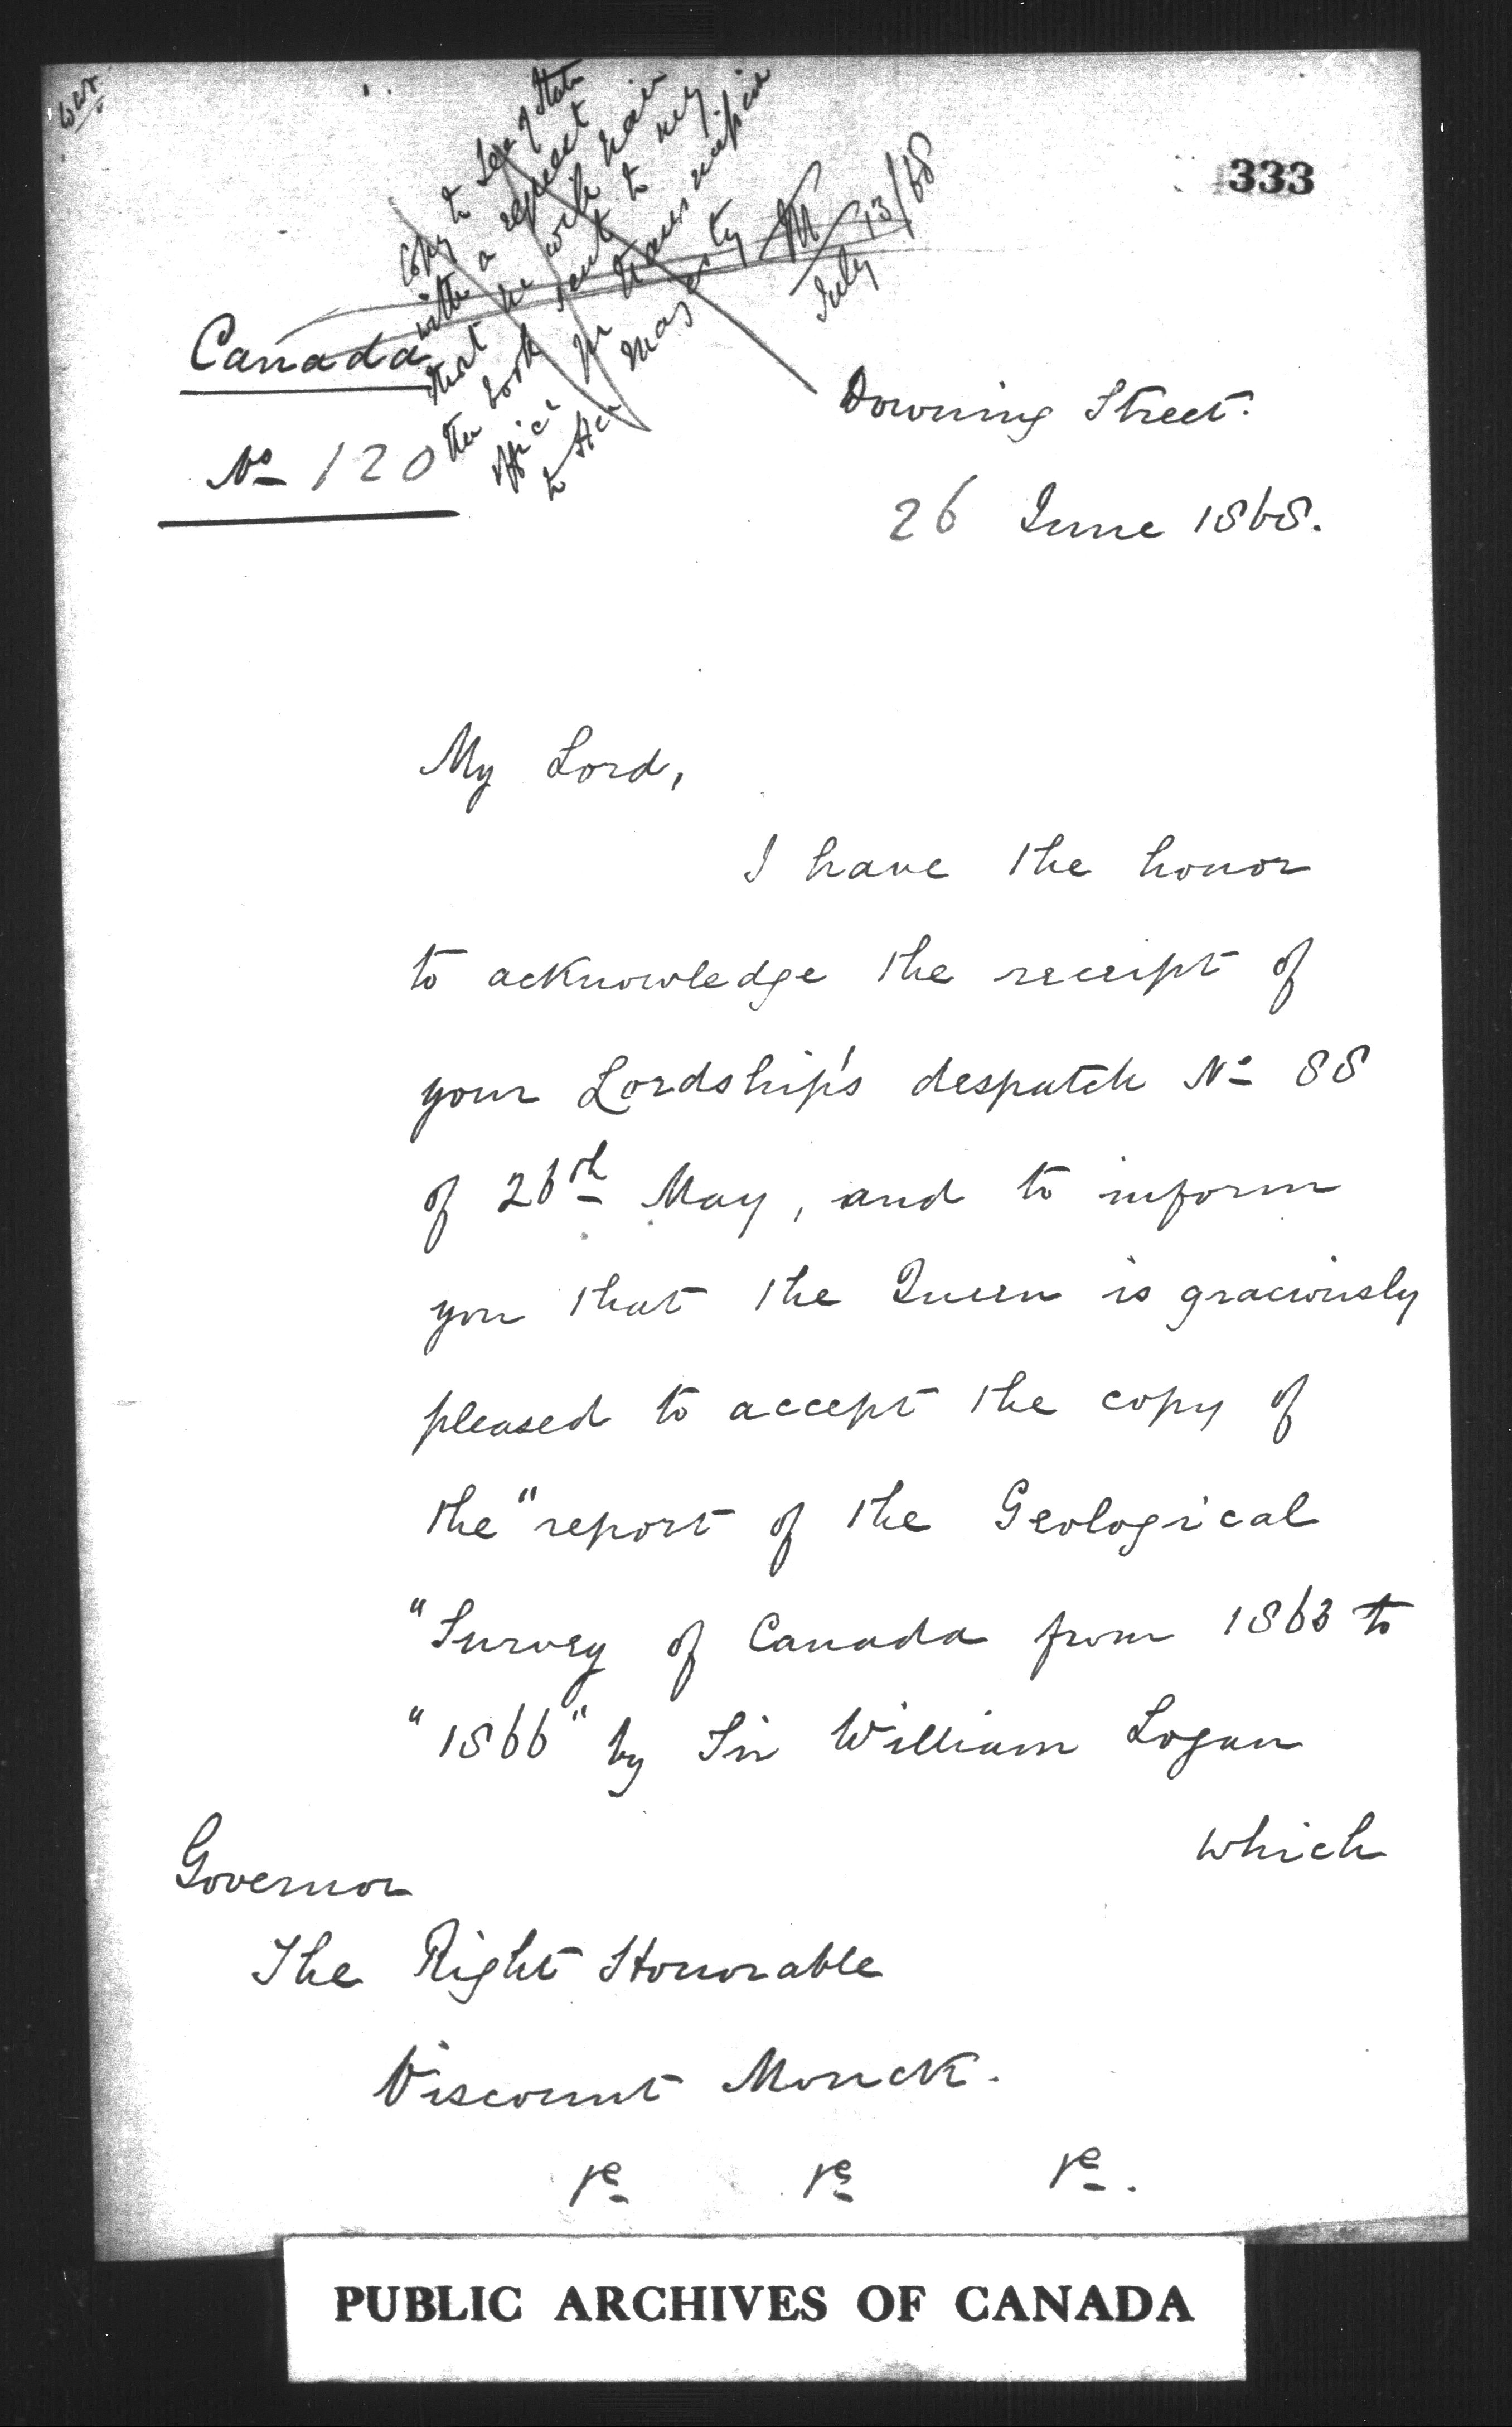 333
Copy to Secy of State
with a request
that he will have
the book sent to my
office for transmission
to Her Majesty M
July 13/68
Canada
No 120
Downing Street.
26 June 1868.
My Lord,
I have the honor
to acknowledge the receipt of
your Lordship's despatch No 88
of 26th May, and to inform
you that the Queen is graciously
pleased to accept the copy of
the "report of the Geological
"Survey of Canada from 1863 to
"1866" by Sir William Logan
which
Governor
The Right Honorable
Viscount Monck.
&c &c &c.
PUBLIC ARCHIVES OF CANADA